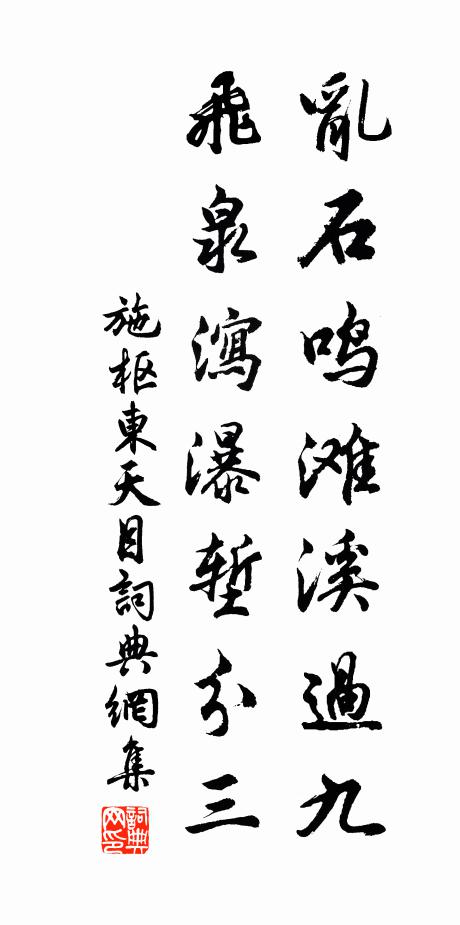 亂石鸣滩溪過九
飛泉瀉瀑堑分三
施枢東天目詞典網集
詞典网印